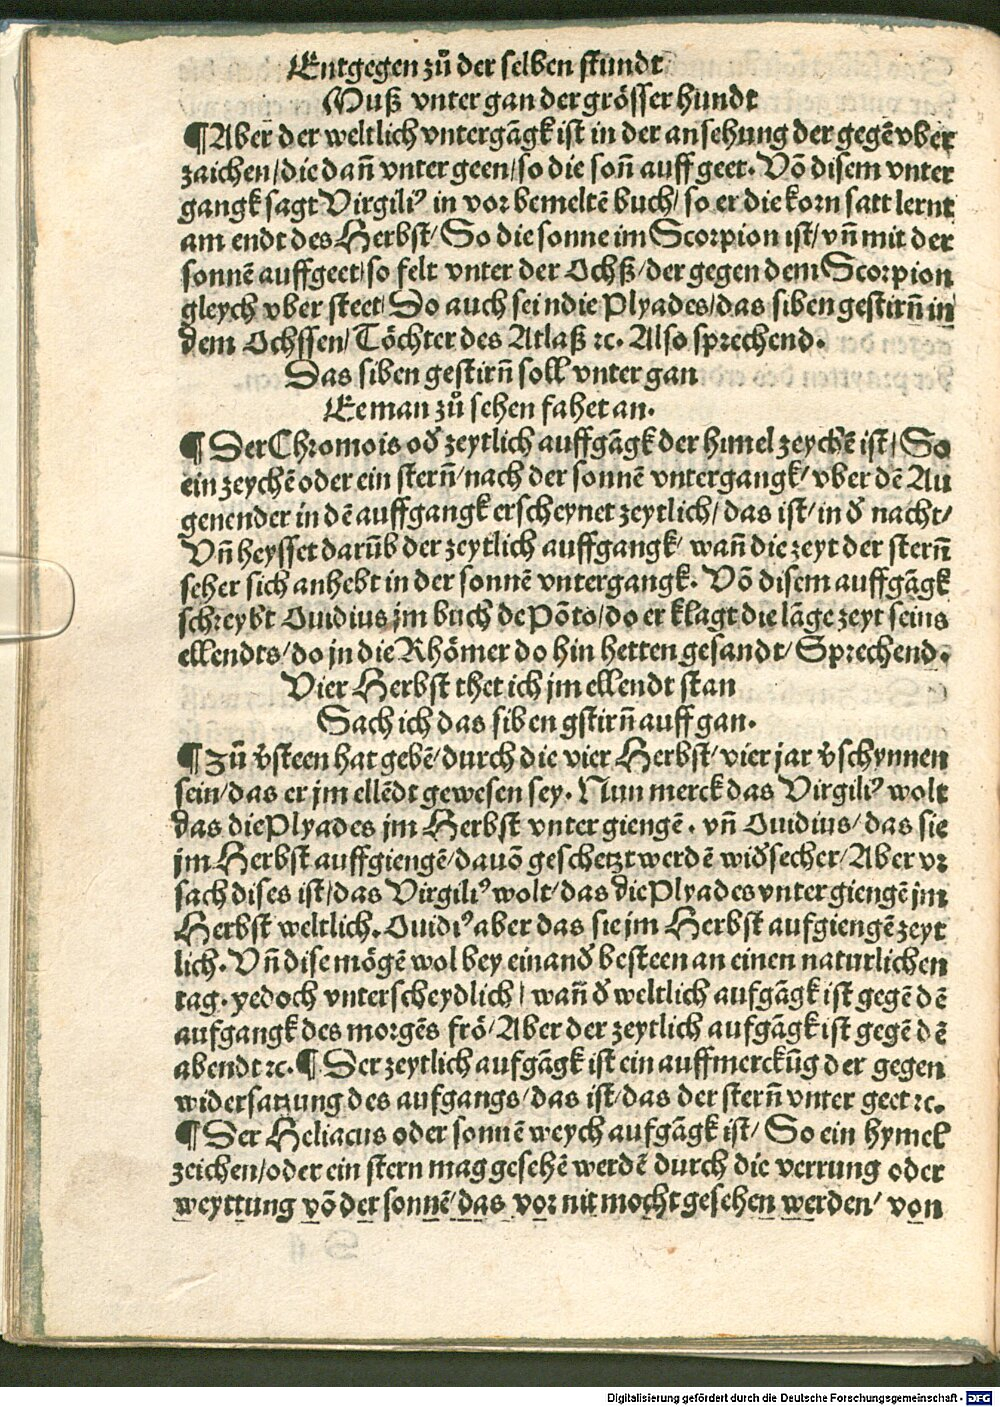 Entgegen zů der selben stundt
Muß vnter gan der grösser hundt
¶ Aber der weltlich vntergāgk ist in der ansehung der gegē vber
zaichen/die dañ vnter geen/so die soñ auff geet. Vō disem vnter
gangk sagt Virgiliꝰ in vor bemeltē buch/so er die korn satt lernt
am endt des Herbst/So die sonne im Scorpion ist/vñ mit der
sonnē auffgeet/so felt vnter der Ochß/der gegen dem Scorpion
gleych vber steet/Do auch sein die Plyades/das siben gestirñ in
dem Ochssen/Töchter des Atlaß ⁊c. Also sprechend.
Das siben gestirñ soll vnter gan
Ee man zů sehen fahet an.
¶ Der Chromois oď zeytlich auffgāgk der himel zeychē ist/So
ein zeychē oder ein sterñ/nach der sonnē vntergangk/vber dē Au
genender in dē auffgangk erscheynet zeytlich/das ist/in ď nacht/
Vñ heysset darūb der zeytlich auffgangk/wañ die zeyt der sterñ
seher sich anhebt in der sonnē vntergangk. Vō disem auffgāgk
schreybt Ouidius jm buch de Pōto/do er klagt die lāge zeyt seins
ellendts/do jn die Rhömer do hin hetten gesandt/Sprechend.
Vier Herbst thet ich jm ellendt stan
Sach ich das siben gstirñ auff gan.
¶ Zū v̄steen hat gebē/durch die vier Herbst/vier jar v̄schynnen
sein/das er jm ellēdt gewesen sey. Nun merck das Virgiliꝰ wolt
das die Plyades jm Herbst vnter giengē. vñ Ouidius/das sie
jm Herbst auffgiengē/dauō geschetzt werdē wiďsecher/Aber vr
sach dises ist/das Virgiliꝰ wolt/das die Plyades vnter giengē jm
Herbst weltlich. Ouidiꝰ aber das sie jm Herbst aufgiengē zeyt
lich. Vñ dise mögē wol bey einanď besteen an einen naturlichen
tag. yedoch vnterscheydlich/wañ ď weltlich aufgāgk ist gegē dē
aufgangk des morgēs frö/Aber der zeytlich aufgāgk ist gegē dē
abendt ⁊c. ¶ Der zeytlich aufgāgk ist ein auffmerckūg der gegen
widersatzung des aufgangs/das ist/das der sterñ vnter geet ⁊c.
¶ Der Heliacus oder sonnē weych aufgāgk ist/So ein hymel
zeichen/oder ein stern mag gesehē werdē durch die verrung oder
weyttung vō der sonnē/das vor nit mocht gesehen werden/von
Digitalisierung gefördert durch die Deutsche Forschungsgemeinschaft - DFG